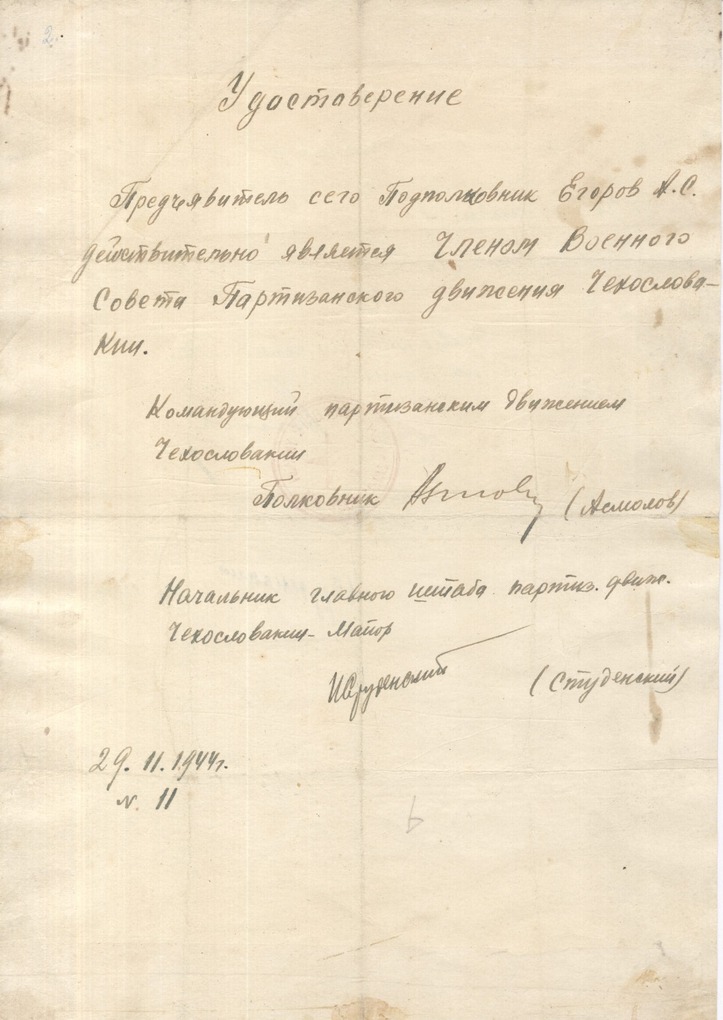 2.
Удостоверение
Предъявитель сего Подполковник Егоров А.С.
действительно является Членом Военного
Совета Партизанского движения Чехослова-
кии.
Командующий партизанским движением
Чехословакии
Полковник (Асмолов)
Начальник главного штаба партиз. движ.
Чехословакии - Майор
ИСтуденский (Студенский)
29.11.1944г.
N. 11